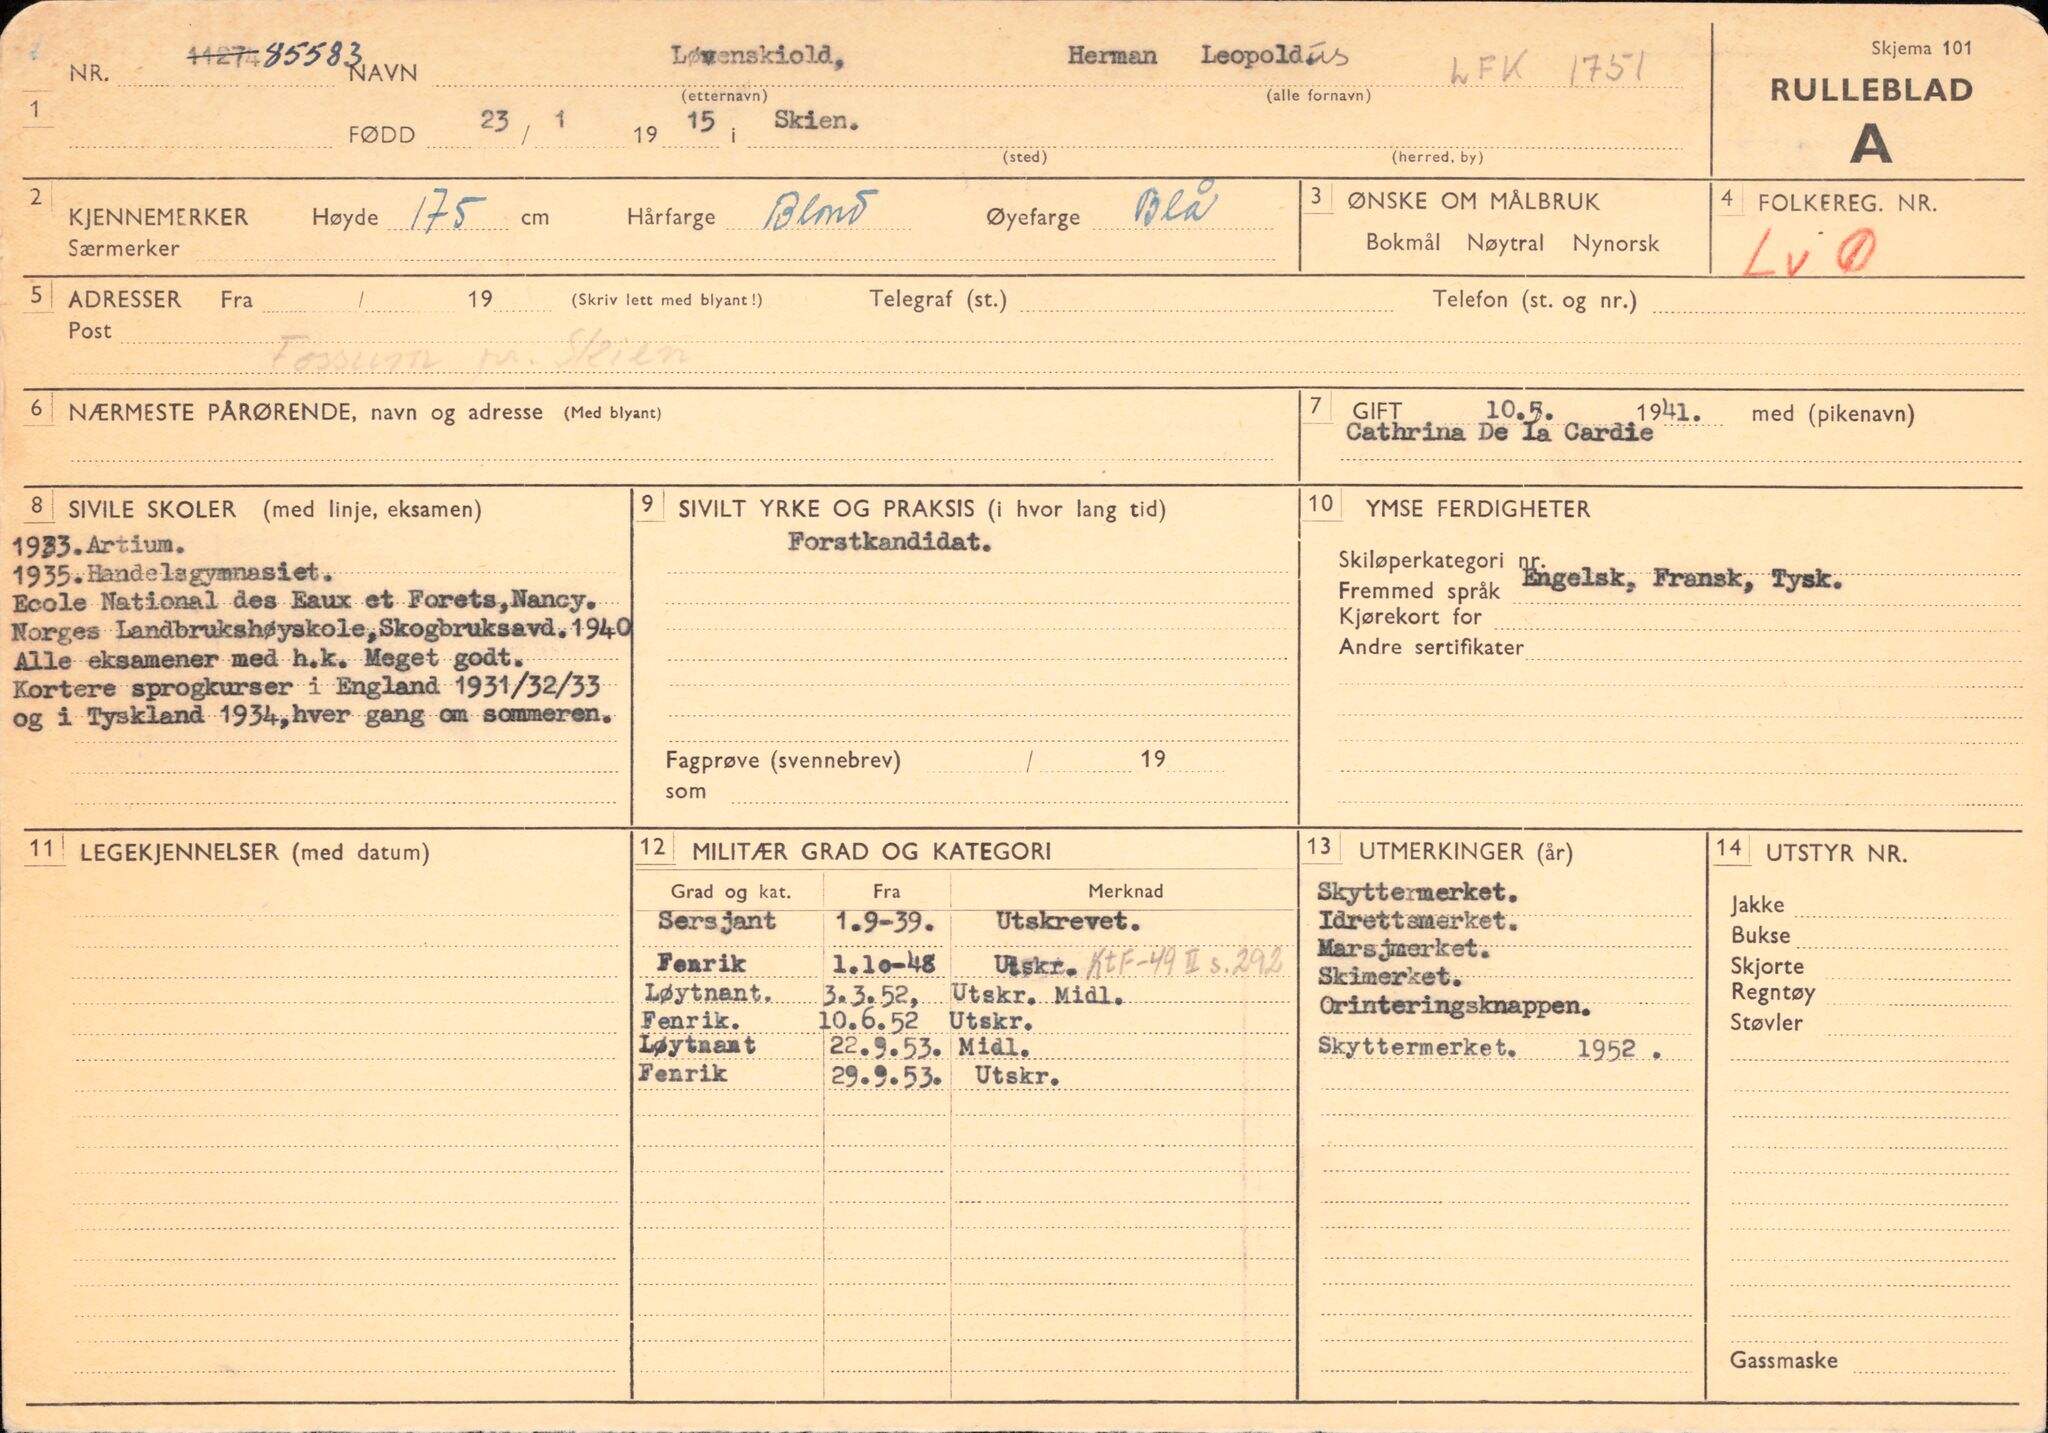 Skjema 101
RULLEBLAD
A
NR. 11274 85583 NAVN Løvenskiold, Herman Leopoldus LFK 1751
(etternavn) (alle fornavn)
1
FØDD 23 / 1 19 15 i Skien.
(sted) (herred, by)
2 KJENNEMERKER Høyde 175 cm Hårfarge Blond Øyefarge Blå
Særmerker
3 ØNSKE OM MÅLBRUK
Bokmål Nøytral Nynorsk
4 FOLKEREG. NR.
Lv
5 ADRESSER Fra / 19 (Skriv lett med blyant!) Telegraf (st.) Telefon (st. og nr.)
Post
Fossum pr. Skien
6 NÆRMESTE PÅRØRENDE, navn og adresse (Med blyant)
7 GIFT 10.5. 1941. med (pikenavn)
Cathrina De la Cardie
8 SIVILE SKOLER (med linje, eksamen)
1933. Artium.
1935. Handelsgymnasiet.
Ecole National des Eaux et Forets, Nancy.
Norges Landbrukshøyskole, Skogbruksavd. 1940
Alle eksamener med h.k. Meget godt.
Kortere sprogkurser i England 1931/32/33
og i Tyskland 1934, hver gang om sommeren.
9 SIVILT YRKE OG PRAKSIS (i hvor lang tid)
Forstkandidat.
Fagprøve (svennebrev) / 19
som
10 YMSE FERDIGHETER
Skiløperkategori nr.
Fremmed språk Engelsk, Fransk, Tysk.
Kjørekort for
Andre sertifikater
11 LEGEKJENNELSER (med datum)
12 MILITÆR GRAD OG KATEGORI
Grad og kat. Fra Merknad
Sersjant 1.9-39. Utskrevet.
Fenrik 1.10-48 Utskr. KtF-49 II s.292
Løytnant. 3.3.52, Utskr. Midl.
Fenrik. 10.6.52 Utskr.
Løytnant 22.9.53. Midl.
Fenrik 29.9.53. Utskr.
13 UTMERKINGER (år)
Skyttermerket.
Idrettsmerket.
Marsjmerket.
Skimerket.
Orinteringsknappen.
Skyttermerket. 1952 .
14 UTSTYR NR.
Jakke
Bukse
Skjorte
Regntøy
Støvler
Gassmaske